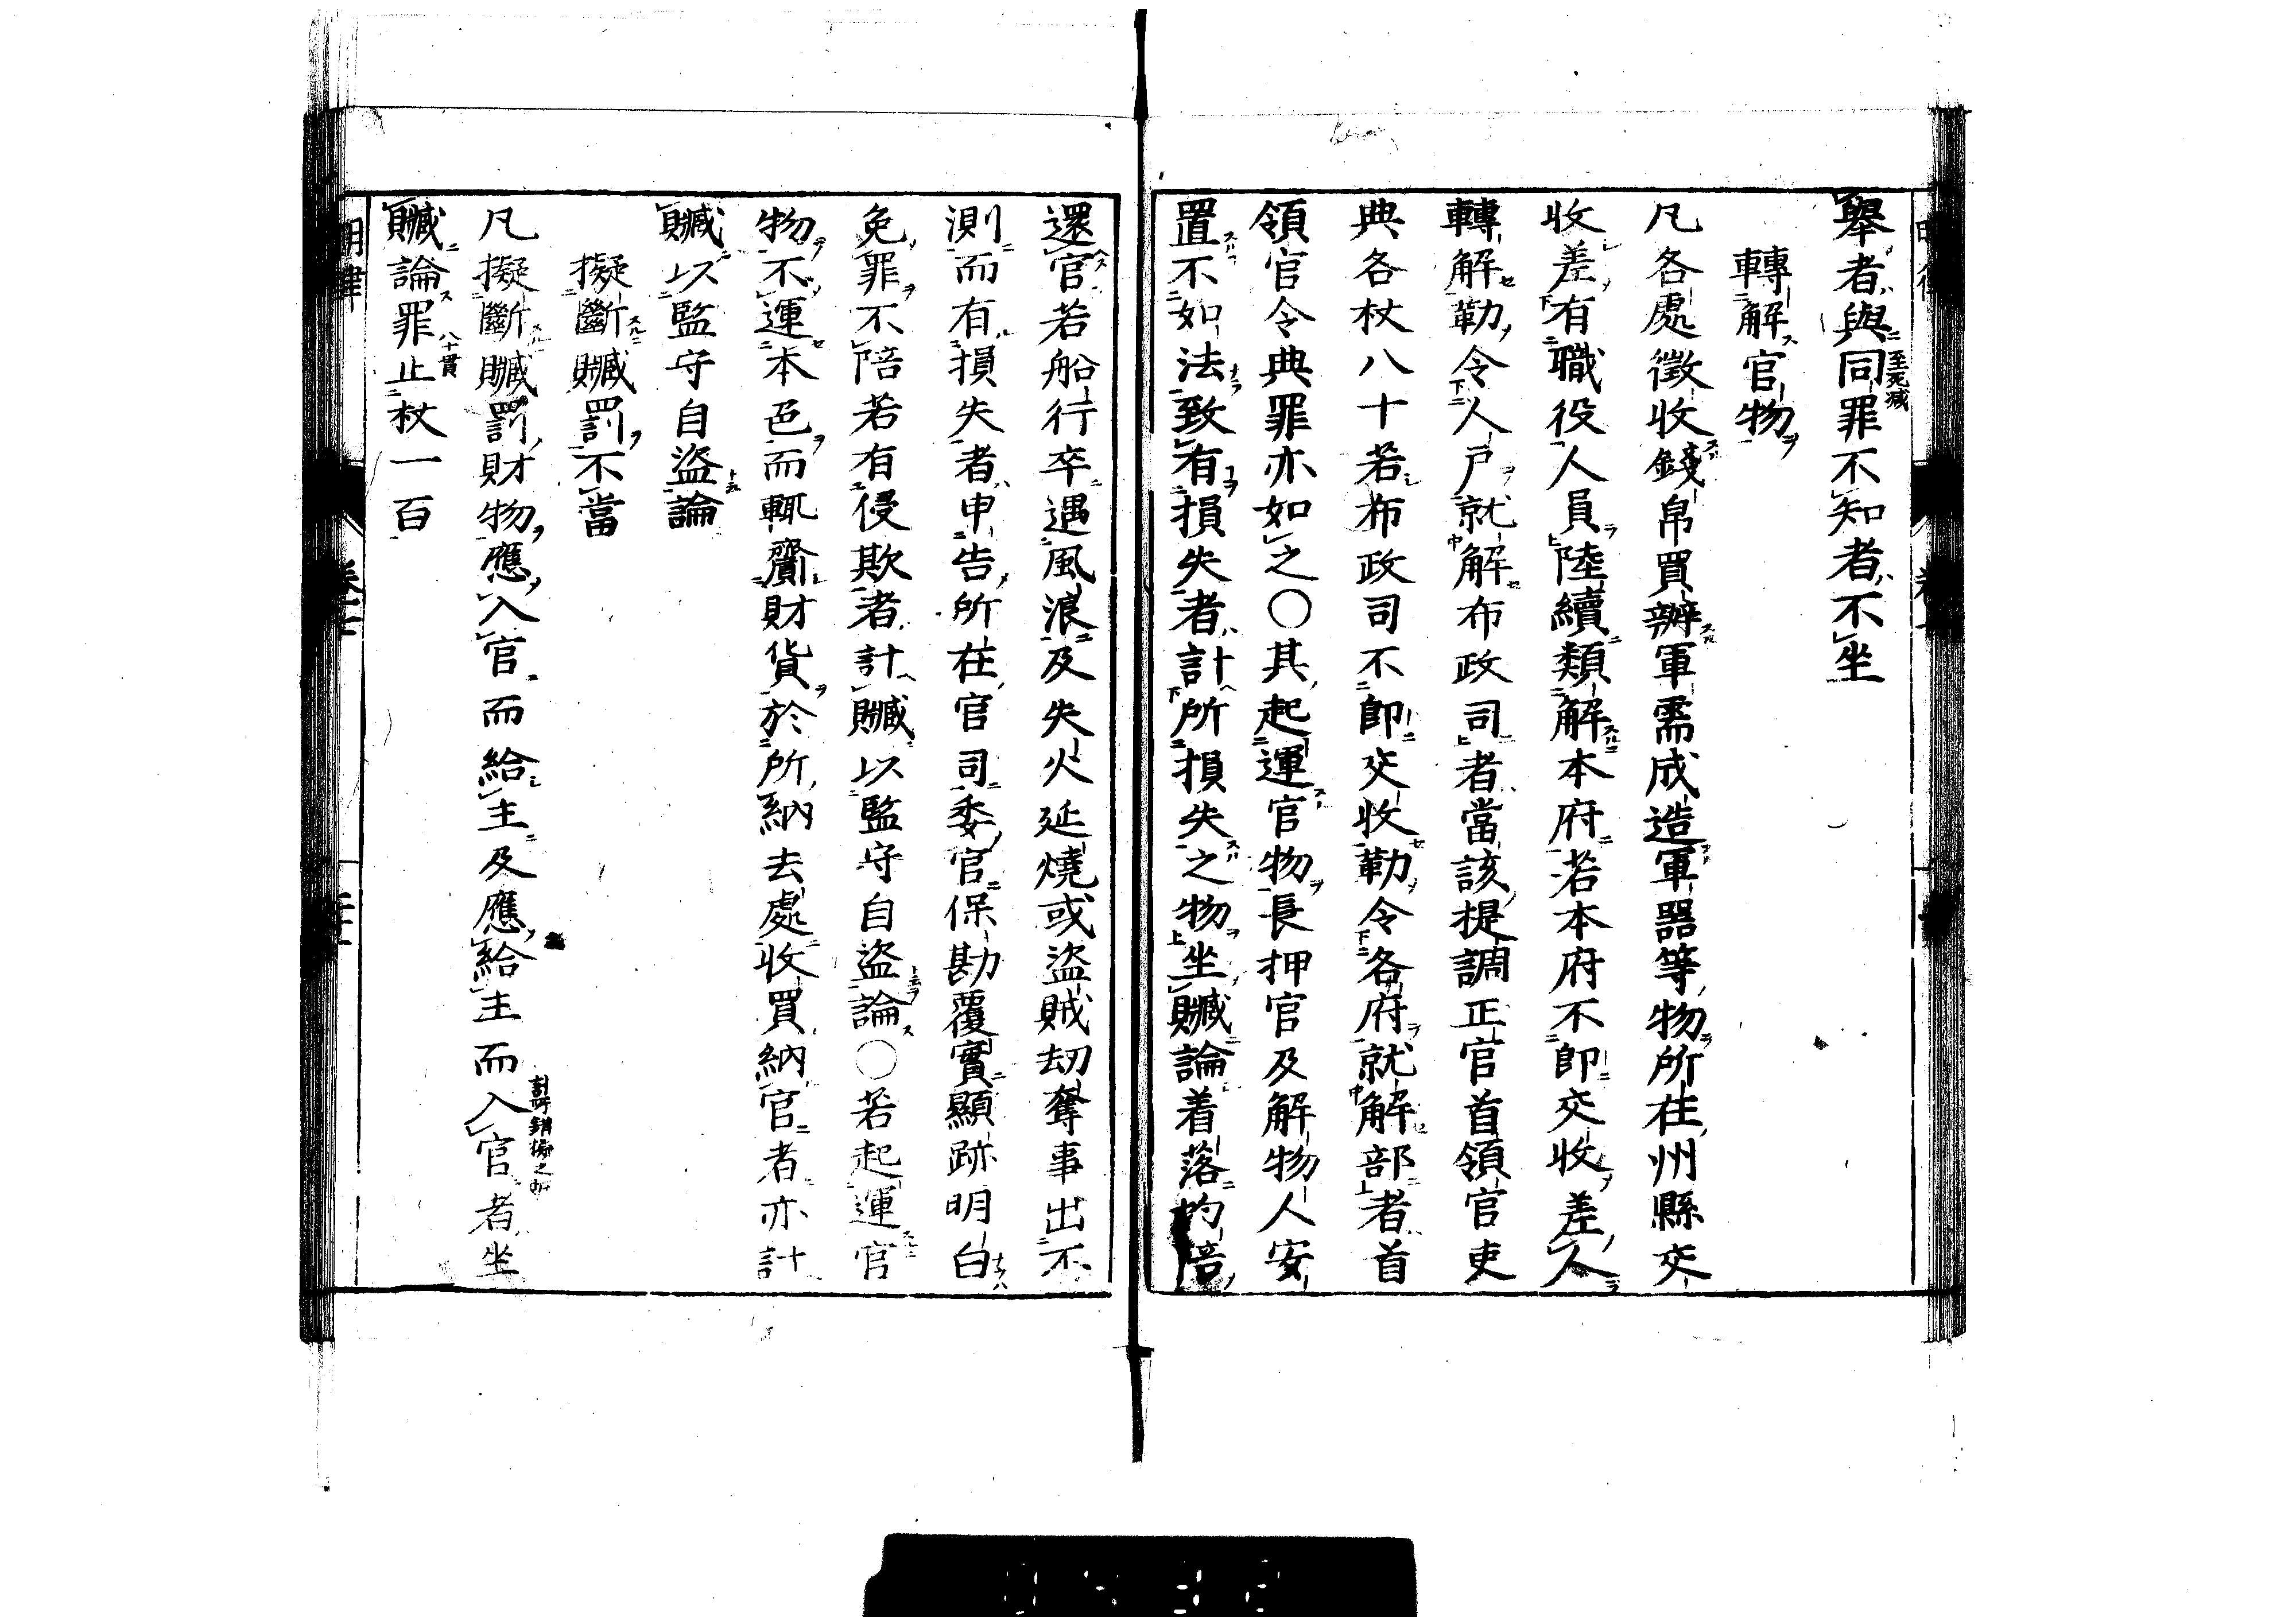 舉者與同罪不知者不坐
至死減
轉解官物
凡各處徵收錢帛買辦軍需成造軍器等物所在州縣交
收差有職役人員陸續類解本府若本府不即交收差人
轉解勒令人戶就解布政司者當該提調正官首領官吏
典各杖八十若布政司不即交收勒令各府就解部者首
領官令典罪亦如之〇其起運官物長押官及解物人安
置不如法致有損失者計所損失之物坐贓論着落均陪
還官若船行卒遇風浪及失火延燒或盜賊劫奪事出不
測而有損失者申告所在官司委官保勘覆實顯跡明白
免罪不陪若有侵欺者計贓以監守自盜論〇若起運官
物不運本色而輒齎財貨於所納去處收買納官者亦計
贓以監守自盜論
擬斷贓罰不當
凡擬斷贓罰財物應入官而給主及應給主而入官者坐
贓論罪止杖一百
八十貫
明律